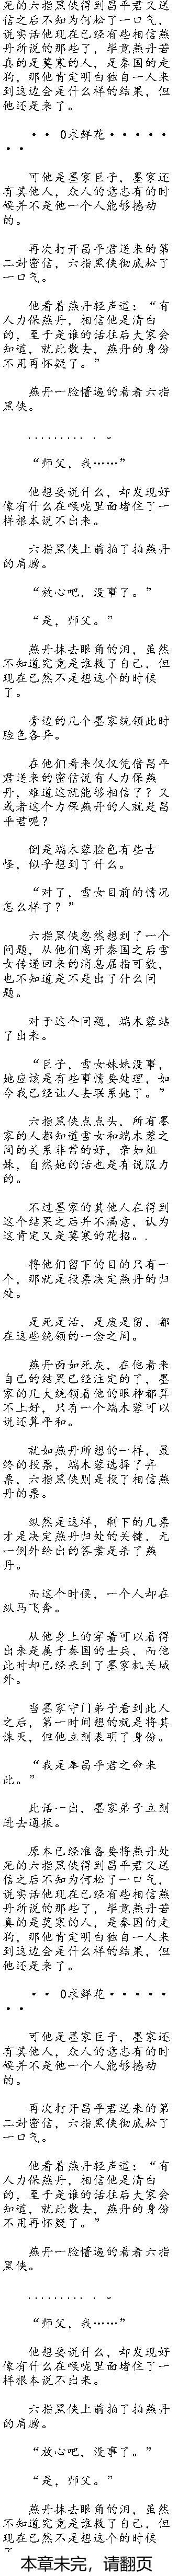 死的六指黑侠得到昌平君又送
信之后不知为何松了一口气，
说实话他现在已经有些相信燕
丹所说的那些了，毕竟燕丹若
真的是莫寒的人，是秦国的走
狗，那他肯定明白独自一人来
到这边会是什么样的结果，但
他还是来了。
·· 0求鲜花······
··
可他是墨家巨子，墨家还
有其他人，众人的意志有的时
候并不是他一个人能够撼动
的。
再次打开昌平君送来的第
二封密信，六指黑侠彻底松了
一口气。
他看着燕丹轻声道：“有
人力保燕丹，相信他是清白
的，至于是谁的话往后大家会
知道，就此散去，燕丹的身份
不用再怀疑了。”
燕丹一脸懵逼的看着六指
黑侠。
“师父，我……”
他想要说什么，却发现好
像有什么在喉咙里面堵住了一
样根本说不出来。
六指黑侠上前拍了拍燕丹
的肩膀。
“放心吧，没事了。”
“是，师父。”
燕丹抹去眼角的泪，虽然
不知道究竟是谁救了自己，但
现在已然不是想这个的时候
了。
旁边的几个墨家统领此时
脸色各异。
在他们看来仅仅凭借昌平
君送来的密信说有人力保燕
丹，难道这就能够相信了？又
或者这个力保燕丹的人就是昌
平君呢？
倒是端木蓉脸色有些古
怪，似乎想到了什么。
“对了，雪女目前的情况
怎么样了？”
六指黑侠忽然想到了一个
问题，从他们离开秦国之后雪
女传递回来的消息屈指可数，
也不知道是不是出了什么问
题。
对于这个问题，端木蓉站
了出来。
“巨子，雪女妹妹没事，
她应该是有些事情要处理，如
今我已经让人去联系她了。”
六指黑侠点点头，所有墨
家的人都知道雪女和端木蓉之
间的关系非常的好，亲如姐
妹，自然她的话也是有说服力
的。
不过墨家的其他人在得到
这个结果之后并不满意，认为
这肯定又是莫寒的花招。.
将他们留下的目的只有一
个，那就是投票决定燕丹的归
处。
是死是活，是废是留，都
在这些统领的一念之间。
燕丹面如死灰，在他看来
自己的结果已经注定的了，墨
家的几大统领看他的眼神都算
不上好，只有一个端木蓉可以
说还算平和。
就如燕丹所想的一样，最
终的投票，端木蓉选择了弃
票，六指黑侠则是投了相信燕
丹的票。
纵然是这样，剩下的几票
才是决定燕丹归处的关键，无
一例外给出的答案是杀了燕
丹。
而这个时候，一个人却在
纵马飞奔。
从他身上的穿着可以看得
出来是属于秦国的士兵，而他
此时却已经来到了墨家机关城
外。
当墨家守门弟子看到此人
之后，第一时间想的就是将其
诛灭，但他立刻表明了身份。
“我是奉昌平君之命来
此。”
此话一出，墨家弟子立刻
进去通报。
原本已经准备要将燕丹处
死的六指黑侠得到昌平君又送
信之后不知为何松了一口气，
说实话他现在已经有些相信燕
丹所说的那些了，毕竟燕丹若
真的是莫寒的人，是秦国的走
狗，那他肯定明白独自一人来
到这边会是什么样的结果，但
他还是来了。
·· 0求鲜花······
··
可他是墨家巨子，墨家还
有其他人，众人的意志有的时
候并不是他一个人能够撼动
的。
再次打开昌平君送来的第
二封密信，六指黑侠彻底松了
一口气。
他看着燕丹轻声道：“有
人力保燕丹，相信他是清白
的，至于是谁的话往后大家会
知道，就此散去，燕丹的身份
不用再怀疑了。”
燕丹一脸懵逼的看着六指
黑侠。
“师父，我……”
他想要说什么，却发现好
像有什么在喉咙里面堵住了一
样根本说不出来。
六指黑侠上前拍了拍燕丹
的肩膀。
“放心吧，没事了。”
“是，师父。”
燕丹抹去眼角的泪，虽然
不知道究竟是谁救了自己，但
现在已然不是想这个的时候
本章未完，请翻页